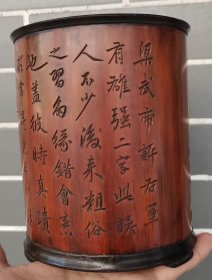 梁武帝評右軍
有雄强二字此誤
人不少後来粗俗
之習多緣錯會意
也蓋彼時真蹟